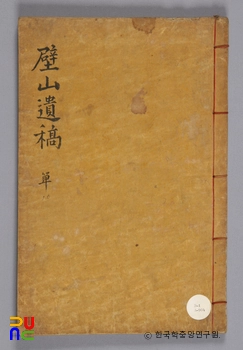 壁山遺稿
單
© 한국학중앙연구원